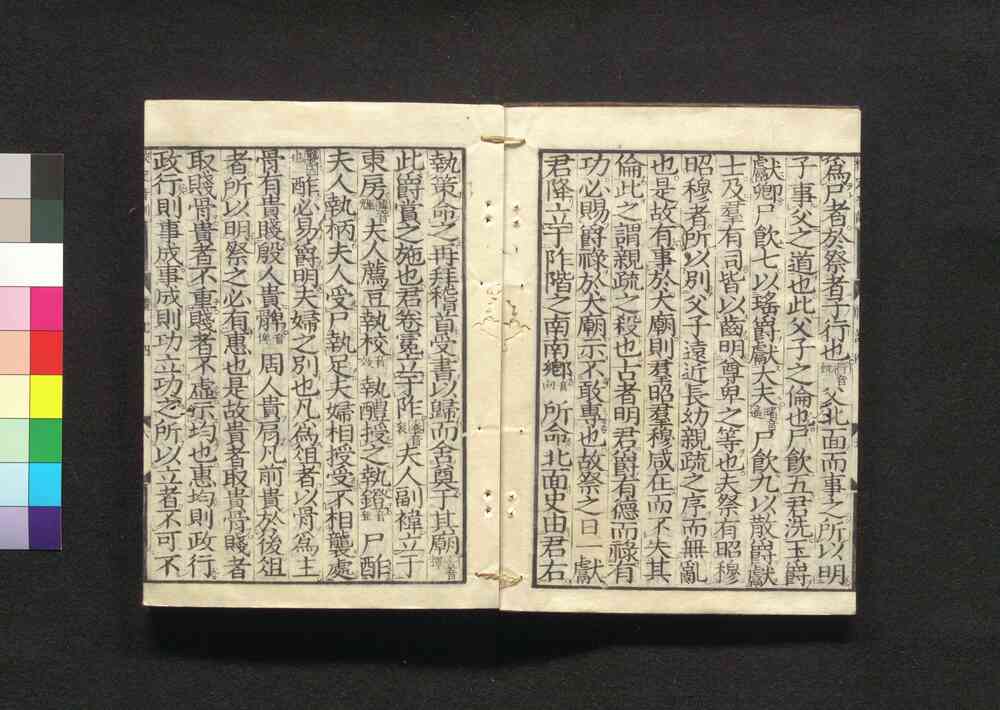 爲尸者於祭者子行也父北面而事之所以明
子事父之道也此父子之倫也尸飲五君洗玉爵
獻卿尸飲七以瑤爵獻大夫尸飲九以散爵獻
士及羣有司皆以齒明尊卑之等也夫祭有昭穆
昭穆者所以別父子遠近長幼親疏之序而無亂
也是故有事於大廟則羣昭羣穆咸在而不失其
倫此之謂親疏之殺也古者明君爵有德而祿有
功必賜爵祿於大廟示不敢專也故祭之日一獻
君降立于阼階之南南鄉所命北面史由君右
執策命之再拜稽首受書以歸而舍奠于其廟
此爵賞之施也君卷冕立于阼夫人副褘立于
東房夫人薦豆執校執醴授之執鐙尸酢
夫人執柄夫人受尸執足夫婦相授受不相襲處
酢必易爵明夫婦之別也凡爲俎者以骨爲主
骨有貴賤殷人貴髀周人貴肩凡前貴於後俎
者所以明祭之必有惠也是故貴者取貴骨賤者
取賤骨貴者不重賤者不虛示均也惠均則政行
政行則事成事成則功立功之所以立者不可不